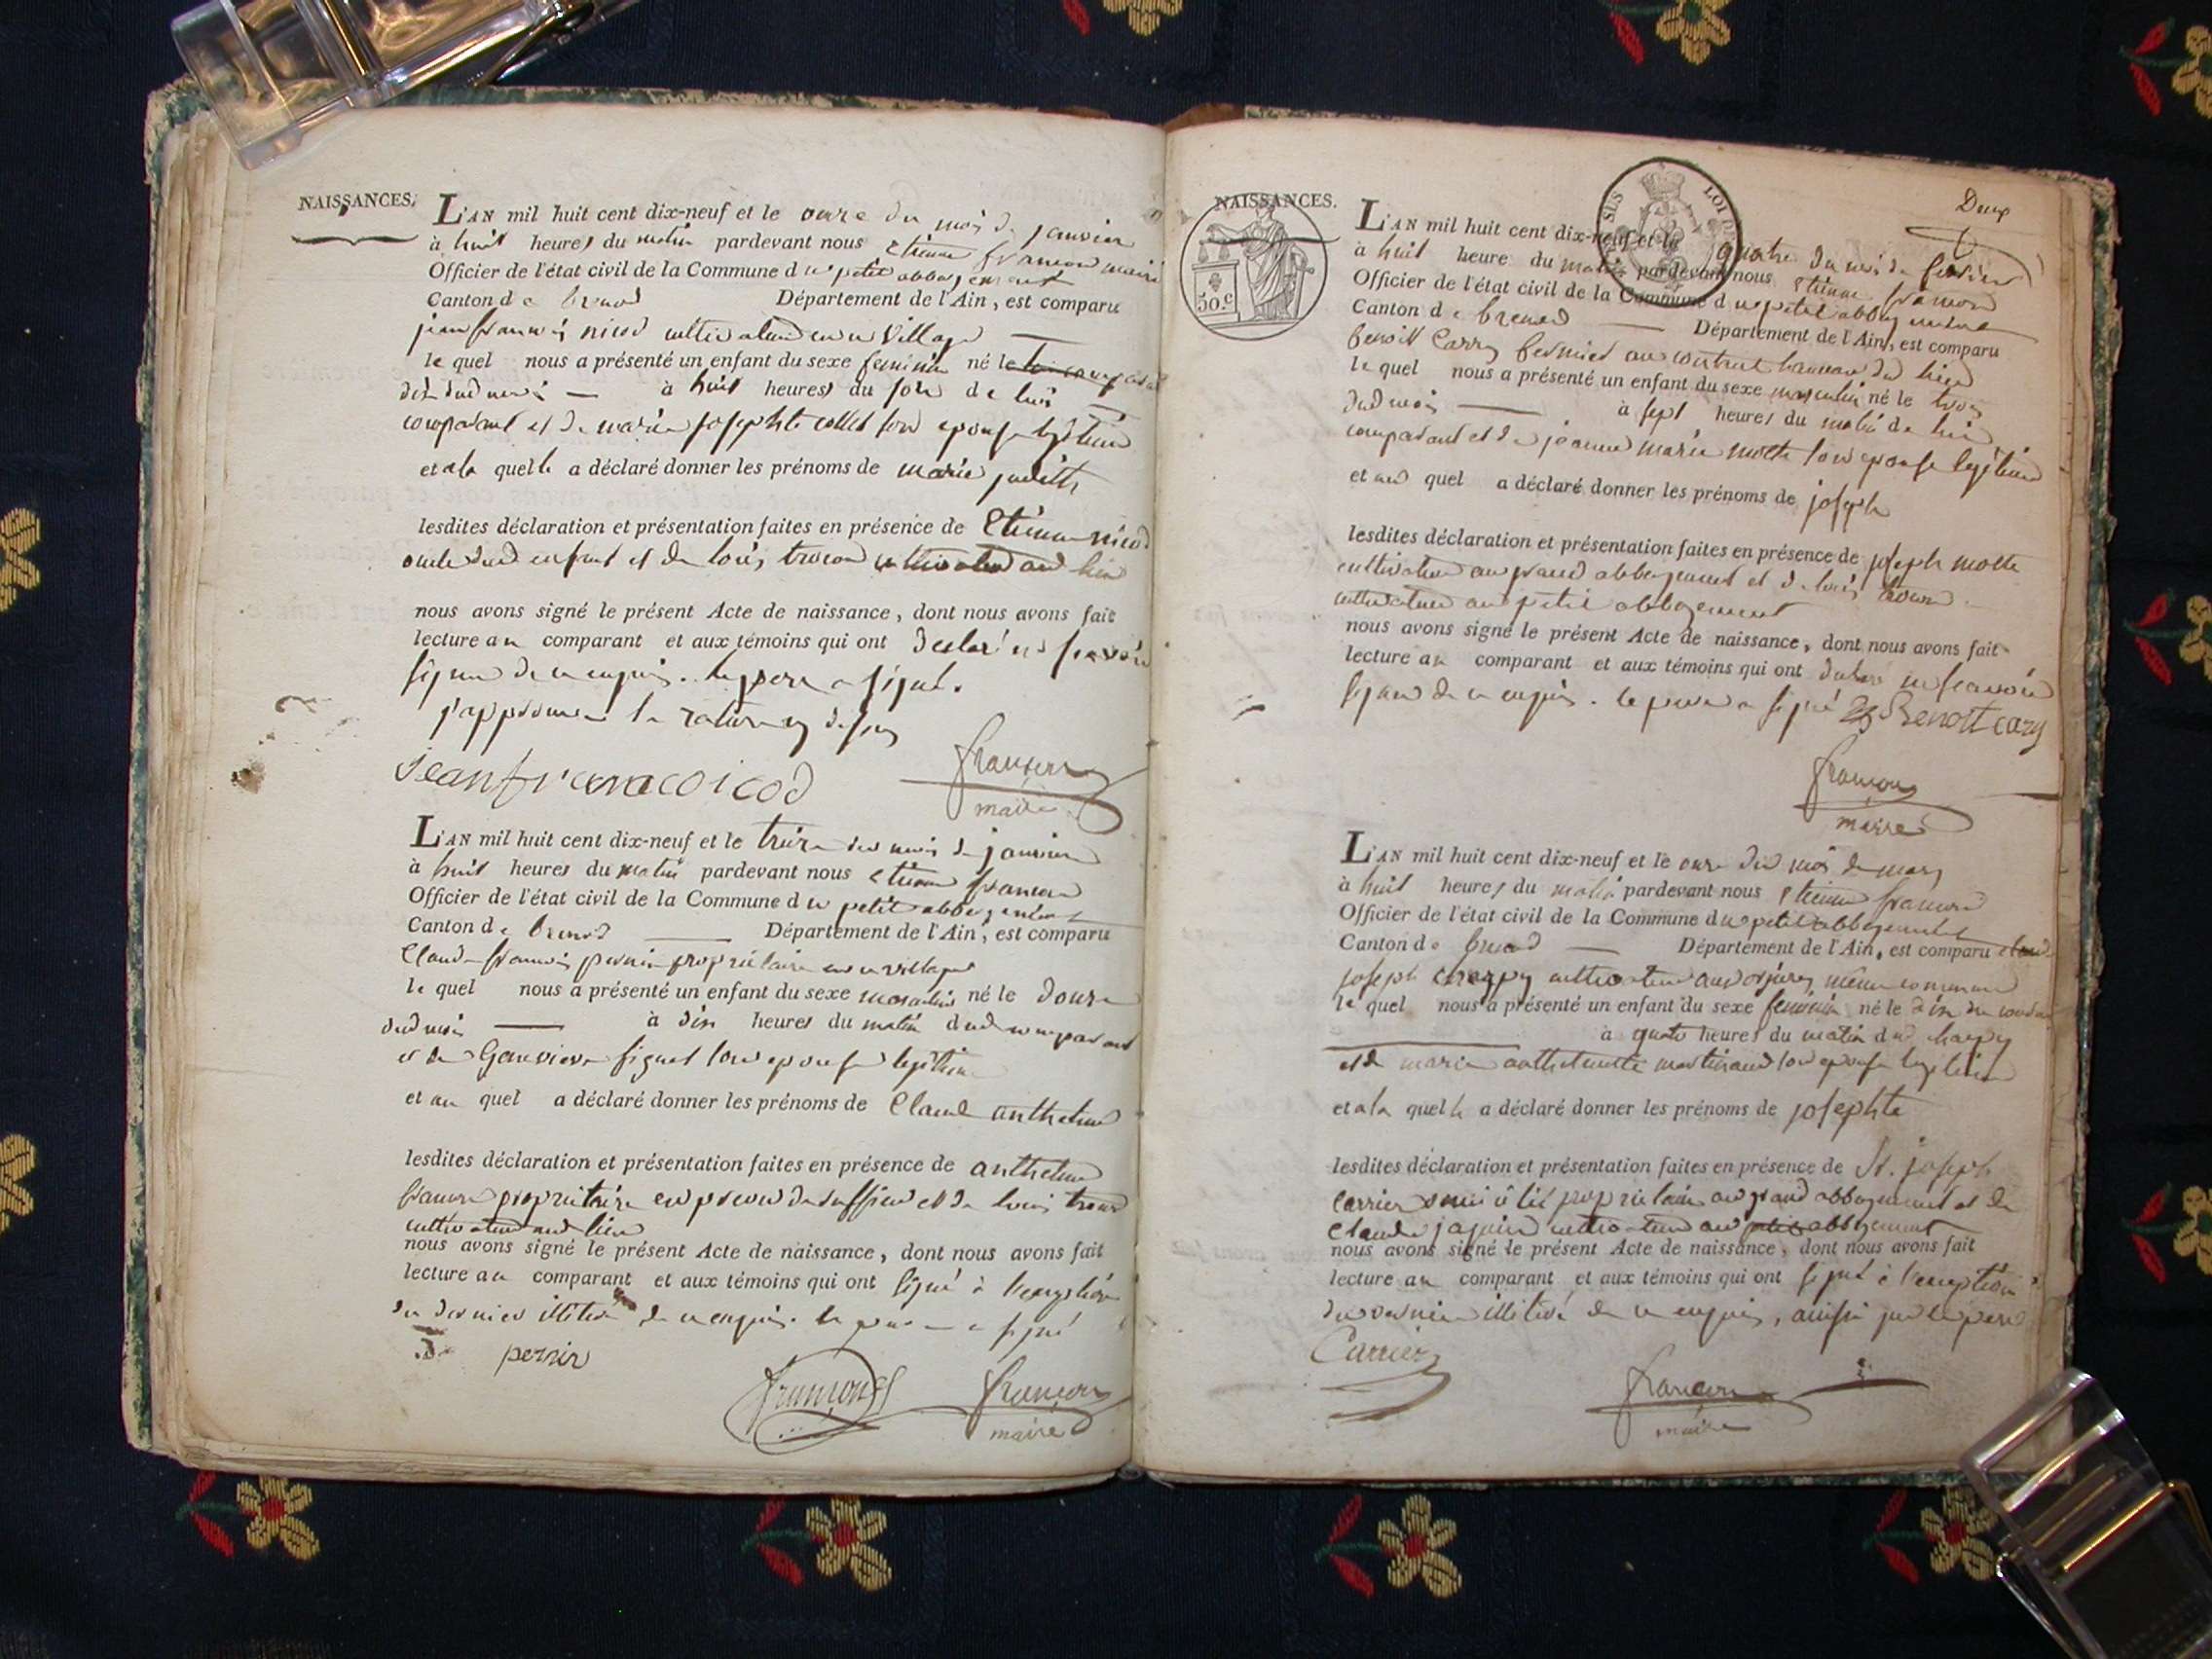 NAISSANCES.
L'AN mil huit cent dix-neuf et le onze du mois de janvier
à huit heures du matin pardevant nous etienne francon maire
Officier de l'état civil de la Commune d u petit abbergement
Canton d e brenod Département de l'Ain, est comparu
jean francois nicod cultivateur en ce village
le quel nous a présenté un enfant du sexe feminin né le
dix dud mois à huit heures du soir de lui
comparant et de marie josephte collet son epouse legitime
et a la quelle a déclaré donner les prénoms de marie judith
lesdites déclaration et présentation faites en présence de Etienne nicod
oncle dud enfant et de louis cultivateur aud lieu
nous avons signé le présent Acte de naissance, dont nous avons fait
lecture au comparant et aux témoins qui ont declaré ne scavoir
signer de ce enquis. le pere a signé.
j'approuve la rature cy dessus
francon
maire
L'AN mil huit cent dix-neuf et le treize du mois de janvier
à huit heures du matin pardevant nous etienne francon
Officier de l'état civil de la Commune d u petit abbergement
Canton d e brenod Département de l'Ain, est comparu
Claude francois pernin propriétaire en ce village
le quel nous a présenté un enfant du sexe masculin né le douze
dud mois à dix heures du matin dud comparant
et de Genevieve son epouse legitime
et au quel a déclaré donner les prénoms de Claude anthelme
lesdites déclaration et présentation faites en présence de anthelme
francon propriétaire et de louis
cultivateur aud lieu
nous avons signé le présent Acte de naissance, dont nous avons fait
lecture au comparant et aux témoins qui ont signé à l'exception
du dernier illitéré de ce enquis. le pere a signé
pernin
francon
francon
maire
Deux
NAISSANCES.
50.c
LOI DE
L'AN mil huit cent dix-neuf et le quatre du mois de fevrier
à huit heure du matin pardevant nous etienne francon
Officier de l'état civil de la Commune d u petit abbergement
Canton d e brenod Département de l'Ain, est comparu
benoit Carry fermier au hameau dud lieu
le quel nous a présenté un enfant du sexe masculin né le trois
dud mois à sept heures du matin de lui
comparant et de jeanne marie motte son epouse legitime
et au quel a déclaré donner les prénoms de joseph
lesdites déclaration et présentation faites en présence de joseph motte
cultivateur au grand abbergement et de louis
cultivateur au petit abbergement
nous avons signé le présent Acte de naissance, dont nous avons fait
lecture au comparant et aux témoins qui ont declaré ne scavoir
signer de ce enquis. le pere a signé Benoit cary
francon
maire
L'AN mil huit cent dix-neuf et le onze du mois de mars
à huit heures du matin pardevant nous etienne francon
Officier de l'état civil de la Commune d u petit abbergement
Canton d e brenod Département de l'Ain, est comparu claude
joseph cultivateur même commune
le quel nous a présenté un enfant du sexe feminin né le dix du courant
à quatre heures du matin dud
et de marie anthelmette son epouse legitime
et a la quelle a déclaré donner les prénoms de josephte
lesdites déclaration et présentation faites en présence de Sr. joseph
Carrier propriétaire au grand abbergement et de
Claude cultivateur au petit abbergement
nous avons signé le présent Acte de naissance, dont nous avons fait
lecture au comparant et aux témoins qui ont signé à l'exception
du dernier illitéré de ce enquis, ainsi que le pere
Carrier
francon
maire